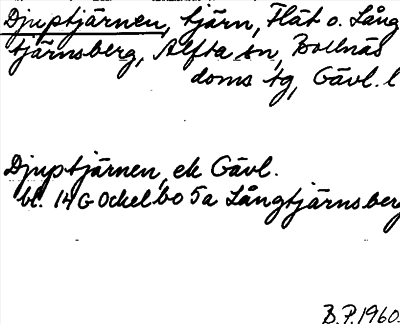 Djuptjärnen, tjärn, Flät o. Lång
tjärnsberg, Alfta sn, Bollnäs
doms tg, Gävl. l
Djuptjärnen, ek Gävl.
bl. 14G Ockelbo 5a Långtjärnsberg
B.P. 1960.